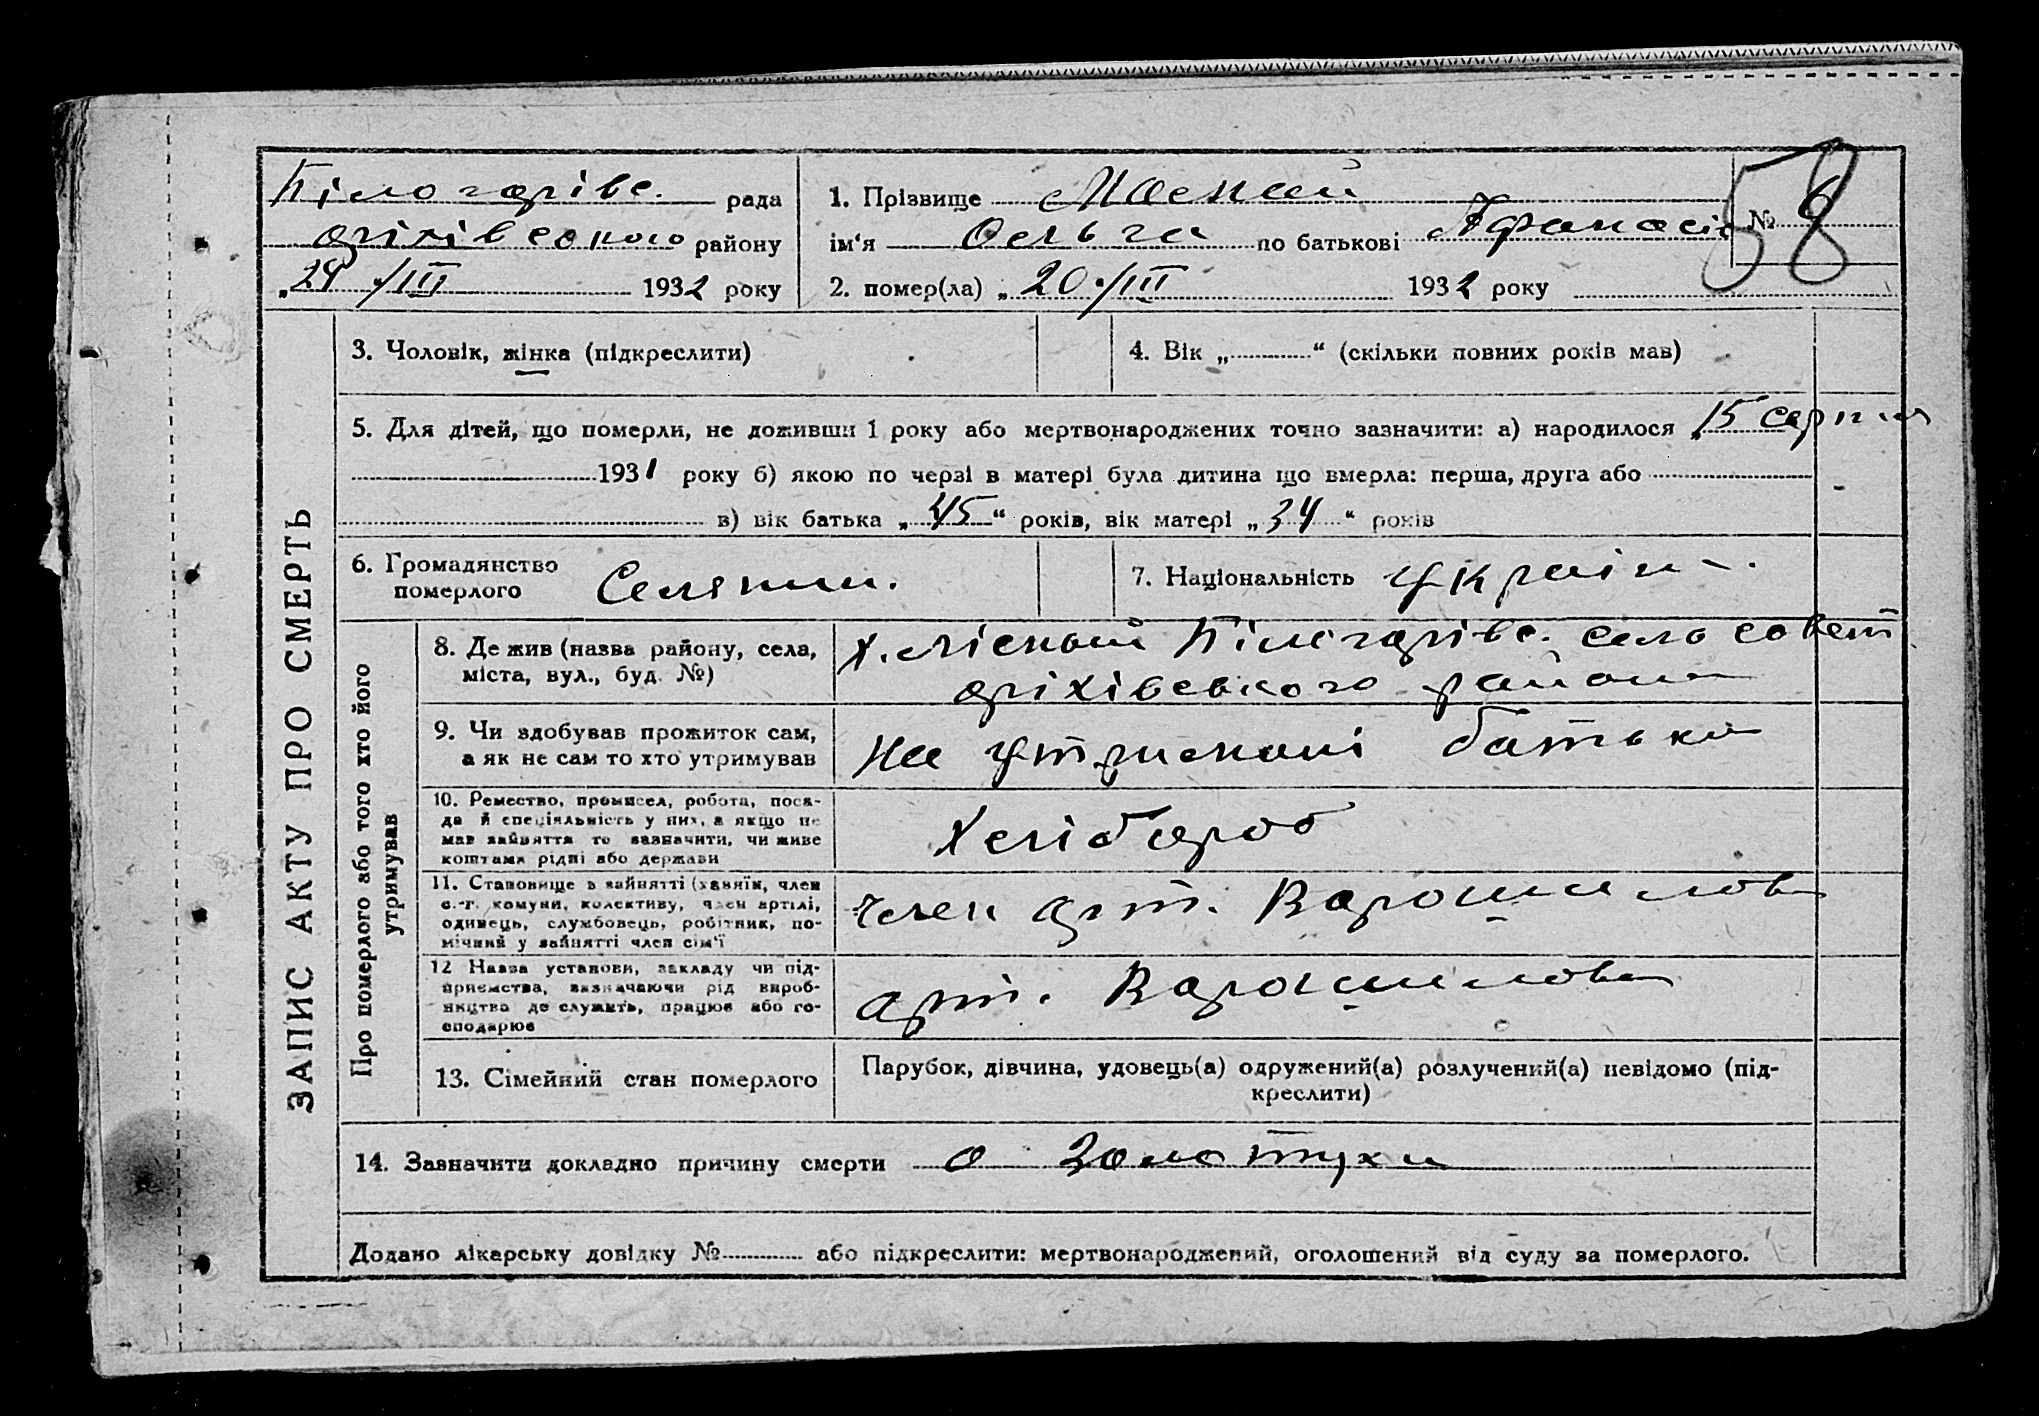 Білогарівс. рада
оріхівського району
„24 /III 1932 року
1. Прізвище
ім'я Ольга по батькові Афанасів
№ 6
58
2. помер(ла) „20./III 1932 року
ЗАПИС АКТУ ПРО СМЕРТЬ
3. Чоловік, жінка (підкреслити)
4. Вік „ “ (скільки повних років мав)
5. Для дітей, що померли, не доживши 1 року або мертвонароджених точно зазначити: а) народилося „15 серпня
1931 року б) якою по черзі в матері була дитина що вмерла: перша, друга або
в) вік батька „45“ років, вік матері „34“ років
6. Громадянство
померлого Селянин.
7. Національність україн.
Про померлого або того хто його
утримував
8. Де жив (назва району, села,
міста, вул., буд. №)
х. лісный Білогарівс. сельсовет
оріхівського района
9. Чи здобував прожиток сам,
а як не сам то хто утримував
на утримані батька
10. Ремество, промисел, робота, поса-
да й спеціяльність у них, а якщо не
мав зайняття то зазначити, чи живе
коштами рідні або держави
Хлібороб
11. Становище в зайнятті (хазяїн, член
с.-г. комуни, колективу, член артілі,
одинець, службовець, робітник, по-
мічний у зайнятті член сім'ї
член арт. Ворошилова
12 Назва установи, закладу чи під-
приємства, зазначаючи рід вироб-
ництва де служить, працює або го-
сподарює
арт. Ворошилова
13. Сімейний стан померлого
Парубок, дівчина, удовець(а) одружений(а) розлучений(а) невідомо (під-
креслити)
14. Зазначити докладно причину смерти о золотухи
Додано лікарську довідку № або підкреслити: мертвонароджений, оголошений від суду за померлого.